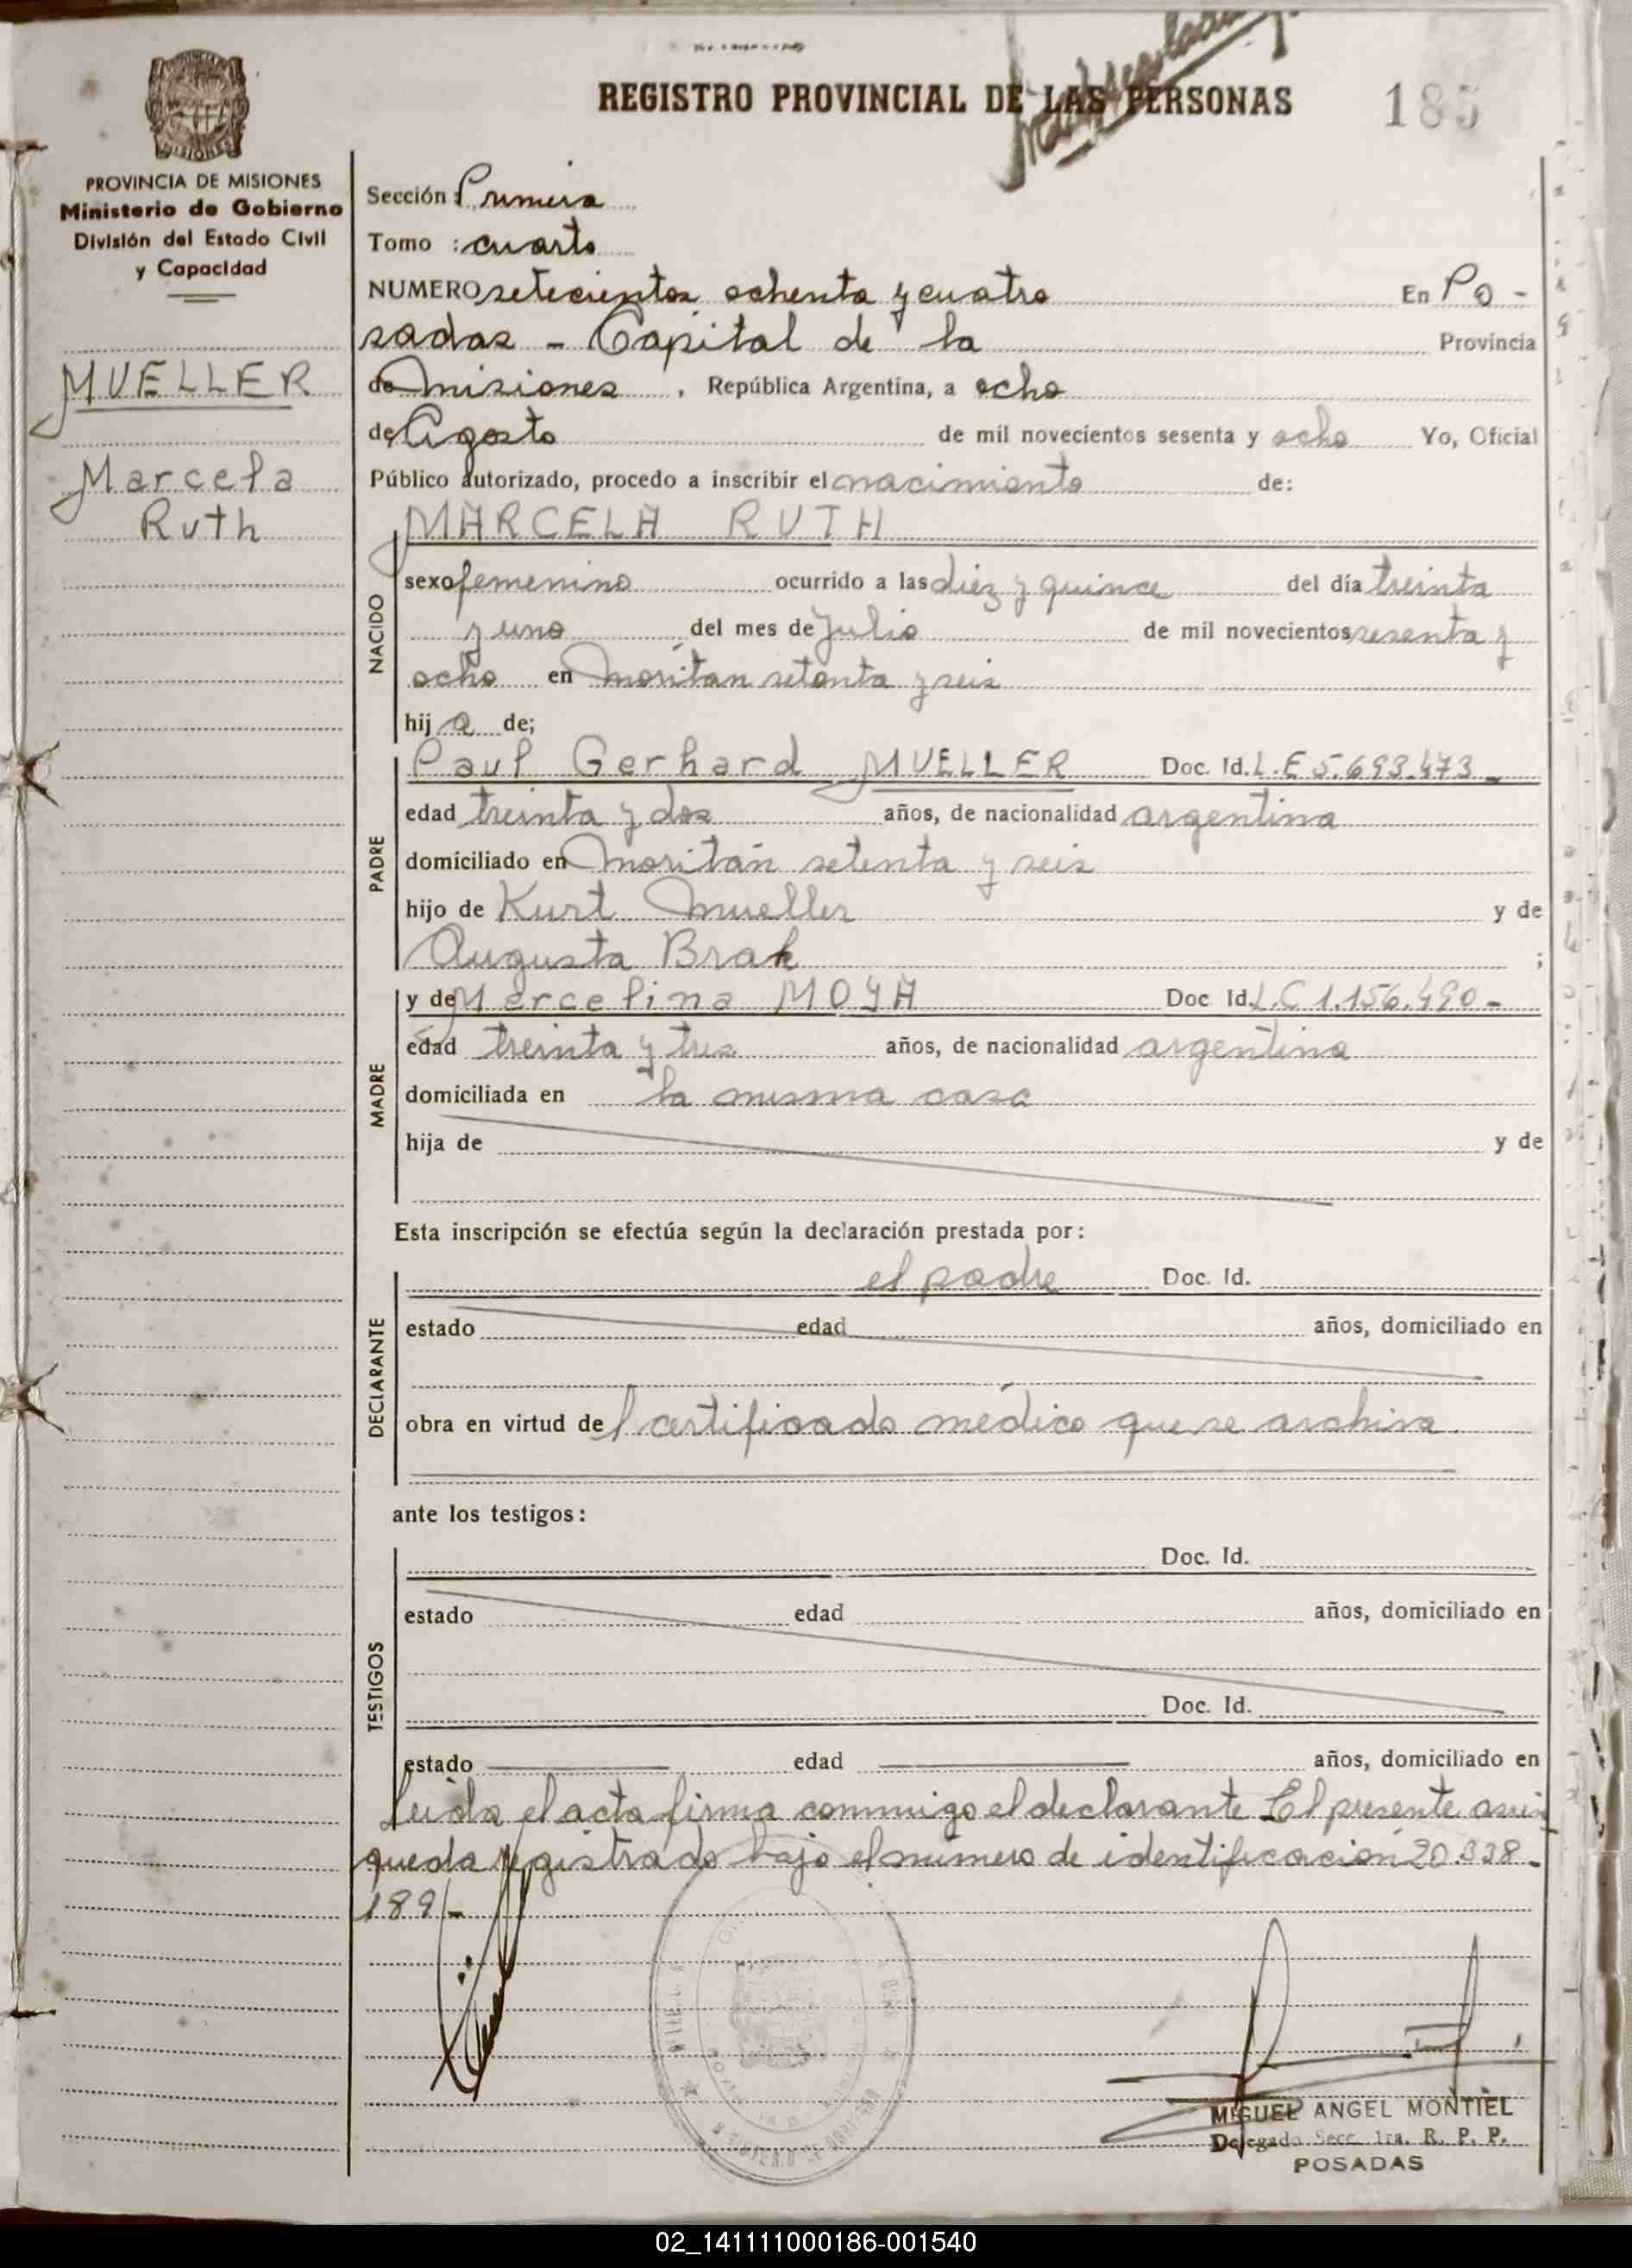 REGISTRO PROVINCIAL DE LAS PERSONAS
185
PROVINCIA DE MISIONES
Ministerio de Gobierno
División del Estado Civil
y Capacidad
MUELLER
Marcela
Ruth
Sección: Primera
Tomo : cuarto
NUMERO setecientos ochenta y cuatro En Po-
sadas - Capital de la Provincia
de Misiones, República Argentina, a ocho
de Agosto de mil novecientos sesenta y ocho Yo, Oficial
Público autorizado, procedo a inscribir el nacimiento de:
MARCELA RUTH
NACIDO
sexo femenino ocurrido a las diez y quince del día treinta
y uno del mes de Julio de mil novecientos sesenta y
ocho en Moritan setenta y seis
hija de;
PADRE
Paul Gerhard MUELLER Doc. Id. L.E 5.693.473-
edad treinta y dos años, de nacionalidad argentina
domiciliado en Moritán setenta y seis
hijo de Kurt Mueller y de
Augusta Brak ;
MADRE
y de Mercelina MOYA Doc Id. L.C 1.156.490-
edad treinta y tres años, de nacionalidad argentina
domiciliada en la misma casa
hija de y de
Esta inscripción se efectúa según la declaración prestada por:
DECLARANTE
el padre Doc. Id.
estado edad años, domiciliado en
obra en virtud del certificado médico que se archiva.
ante los testigos:
TESTIGOS
Doc. Id.
estado edad años, domiciliado en
Doc. Id.
estado edad años, domiciliado en
Leída el acta firma conmigo el declarante El presente
queda registrado bajo el número de identificación 20.328-
189/-
MIGUEL ANGEL MONTIEL
Delegado Secc. 1ra. R. P. P.
POSADAS
02_141111000186-001540